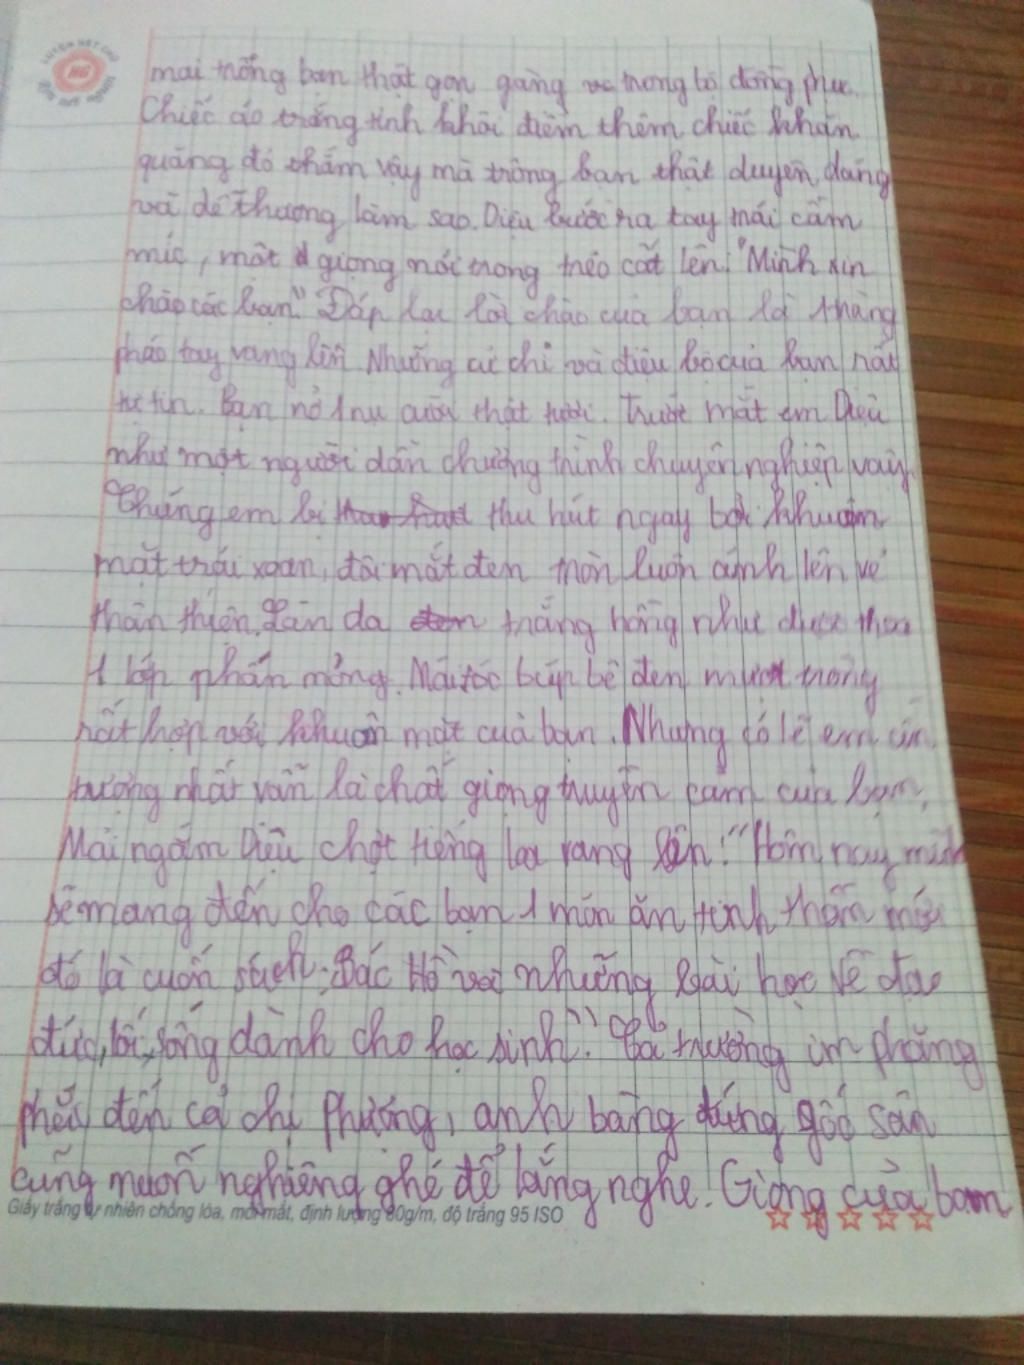 mai trông bạn thật gọn gàng vs trong bộ đồng phục.
Chiếc áo trắng tinh khôi điểm thêm chiếc khăn
quàng đỏ thắm vậy mà trông bạn thật duyên dáng
và dễ thương làm sao. Diệu bước ra tay mái cầm
mic, một giọng nói trong trẻo cất lên: "Mình xin
chào các bạn". Đáp lại lời chào của bạn là tràng
pháo tay vang lên. Những cử chỉ và điệu bộ của bạn rất
tự tin. Bạn nở 1 nụ cười thật tươi. Trước mắt em Diệu
như một người dẫn chương trình chuyên nghiệp vậy.
Chúng em bị thu hút ngay bởi khuôn
mặt trái xoan, đôi mắt đen tròn luôn ánh lên vẻ
thân thiện. Làn da trắng hồng như được thoa
1 lớp phấn mỏng. Mái tóc búp bê đen mượt trông
rất hợp với khuôn mặt của bạn. Nhưng có lẽ em ấn
tượng nhất vẫn là chất giọng truyền cảm của bạn.
Mải ngắm Diệu chợt tiếng loa vang lên: "Hôm nay mình
sẽ mang đến cho các bạn 1 món ăn tinh thần mới
đó là cuốn sách: Bác Hồ và những bài học về đạo
đức, lối sống dành cho học sinh". Cả trường im phăng
phắc đến cả chị Phượng, anh bàng đứng góc sân
cũng muốn nghiêng ghé để lắng nghe. Giọng của bạn
Giấy trắng tự nhiên chống lóa, mỏi mắt, định lượng 80g/m, độ trắng 95 ISO